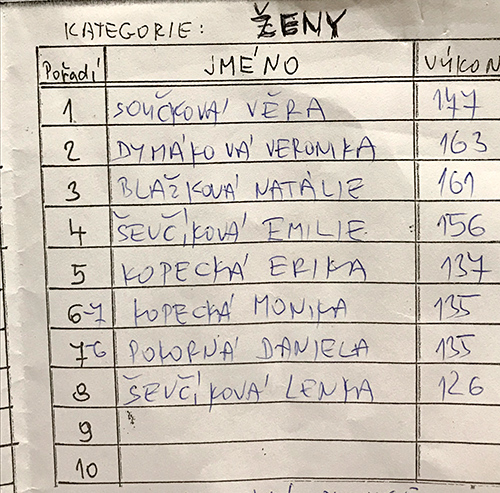 KATEGORIE: ŽENY
Pořadí JMÉNO VÝKON
1 SOUČKOVÁ VĚRA 147
2 DYMÁKOVÁ VERONIKA 163
3 BLAŽKOVÁ NATÁLIE 161
4 ŠEVČÍKOVÁ EMILIE 156
5 KOPECKÁ ERIKA 137
6-7 KOPECKÁ MONIKA 135
7-6 POKORNÁ DANIELA 135
8 ŠEVČÍKOVÁ LENKA 126
9
10